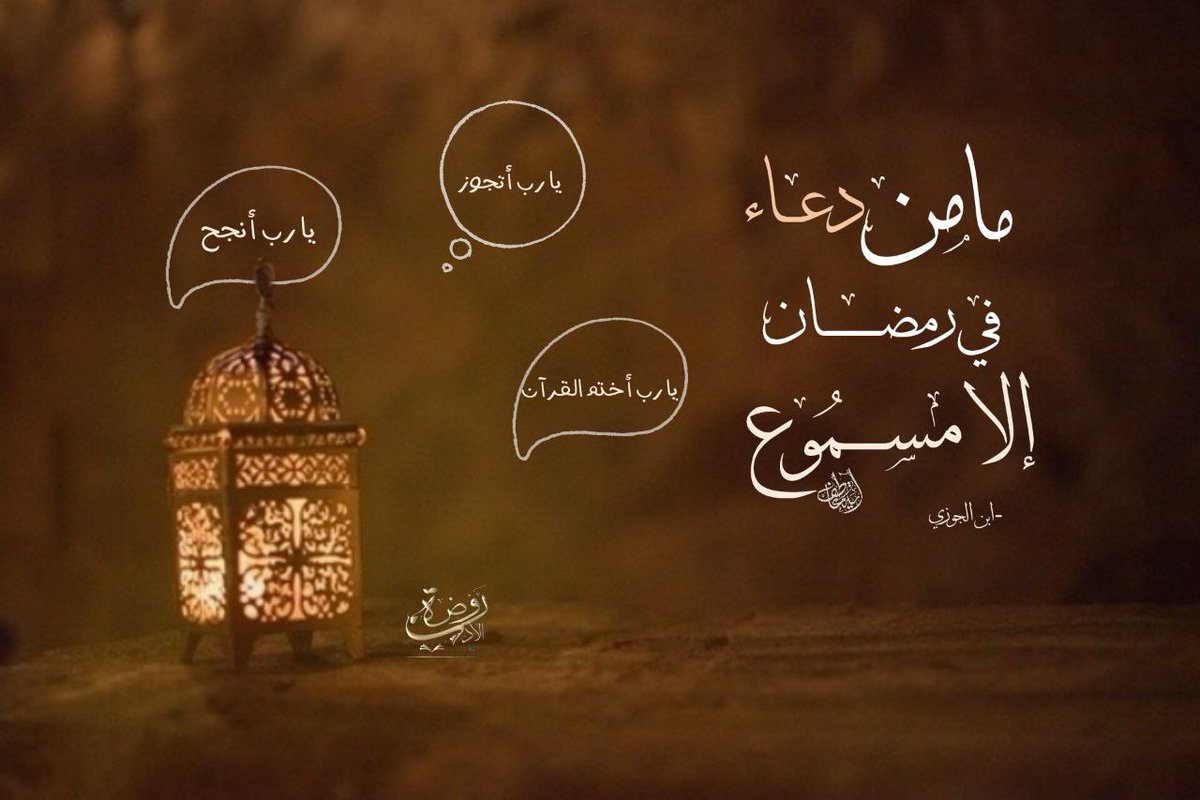 مامن دعاء
في رمضان
إلا مسمُوع
-ابن الجوزي
يارب أتجوز
يارب أنجح
يارب أختم القرآن
روضة
الأدب